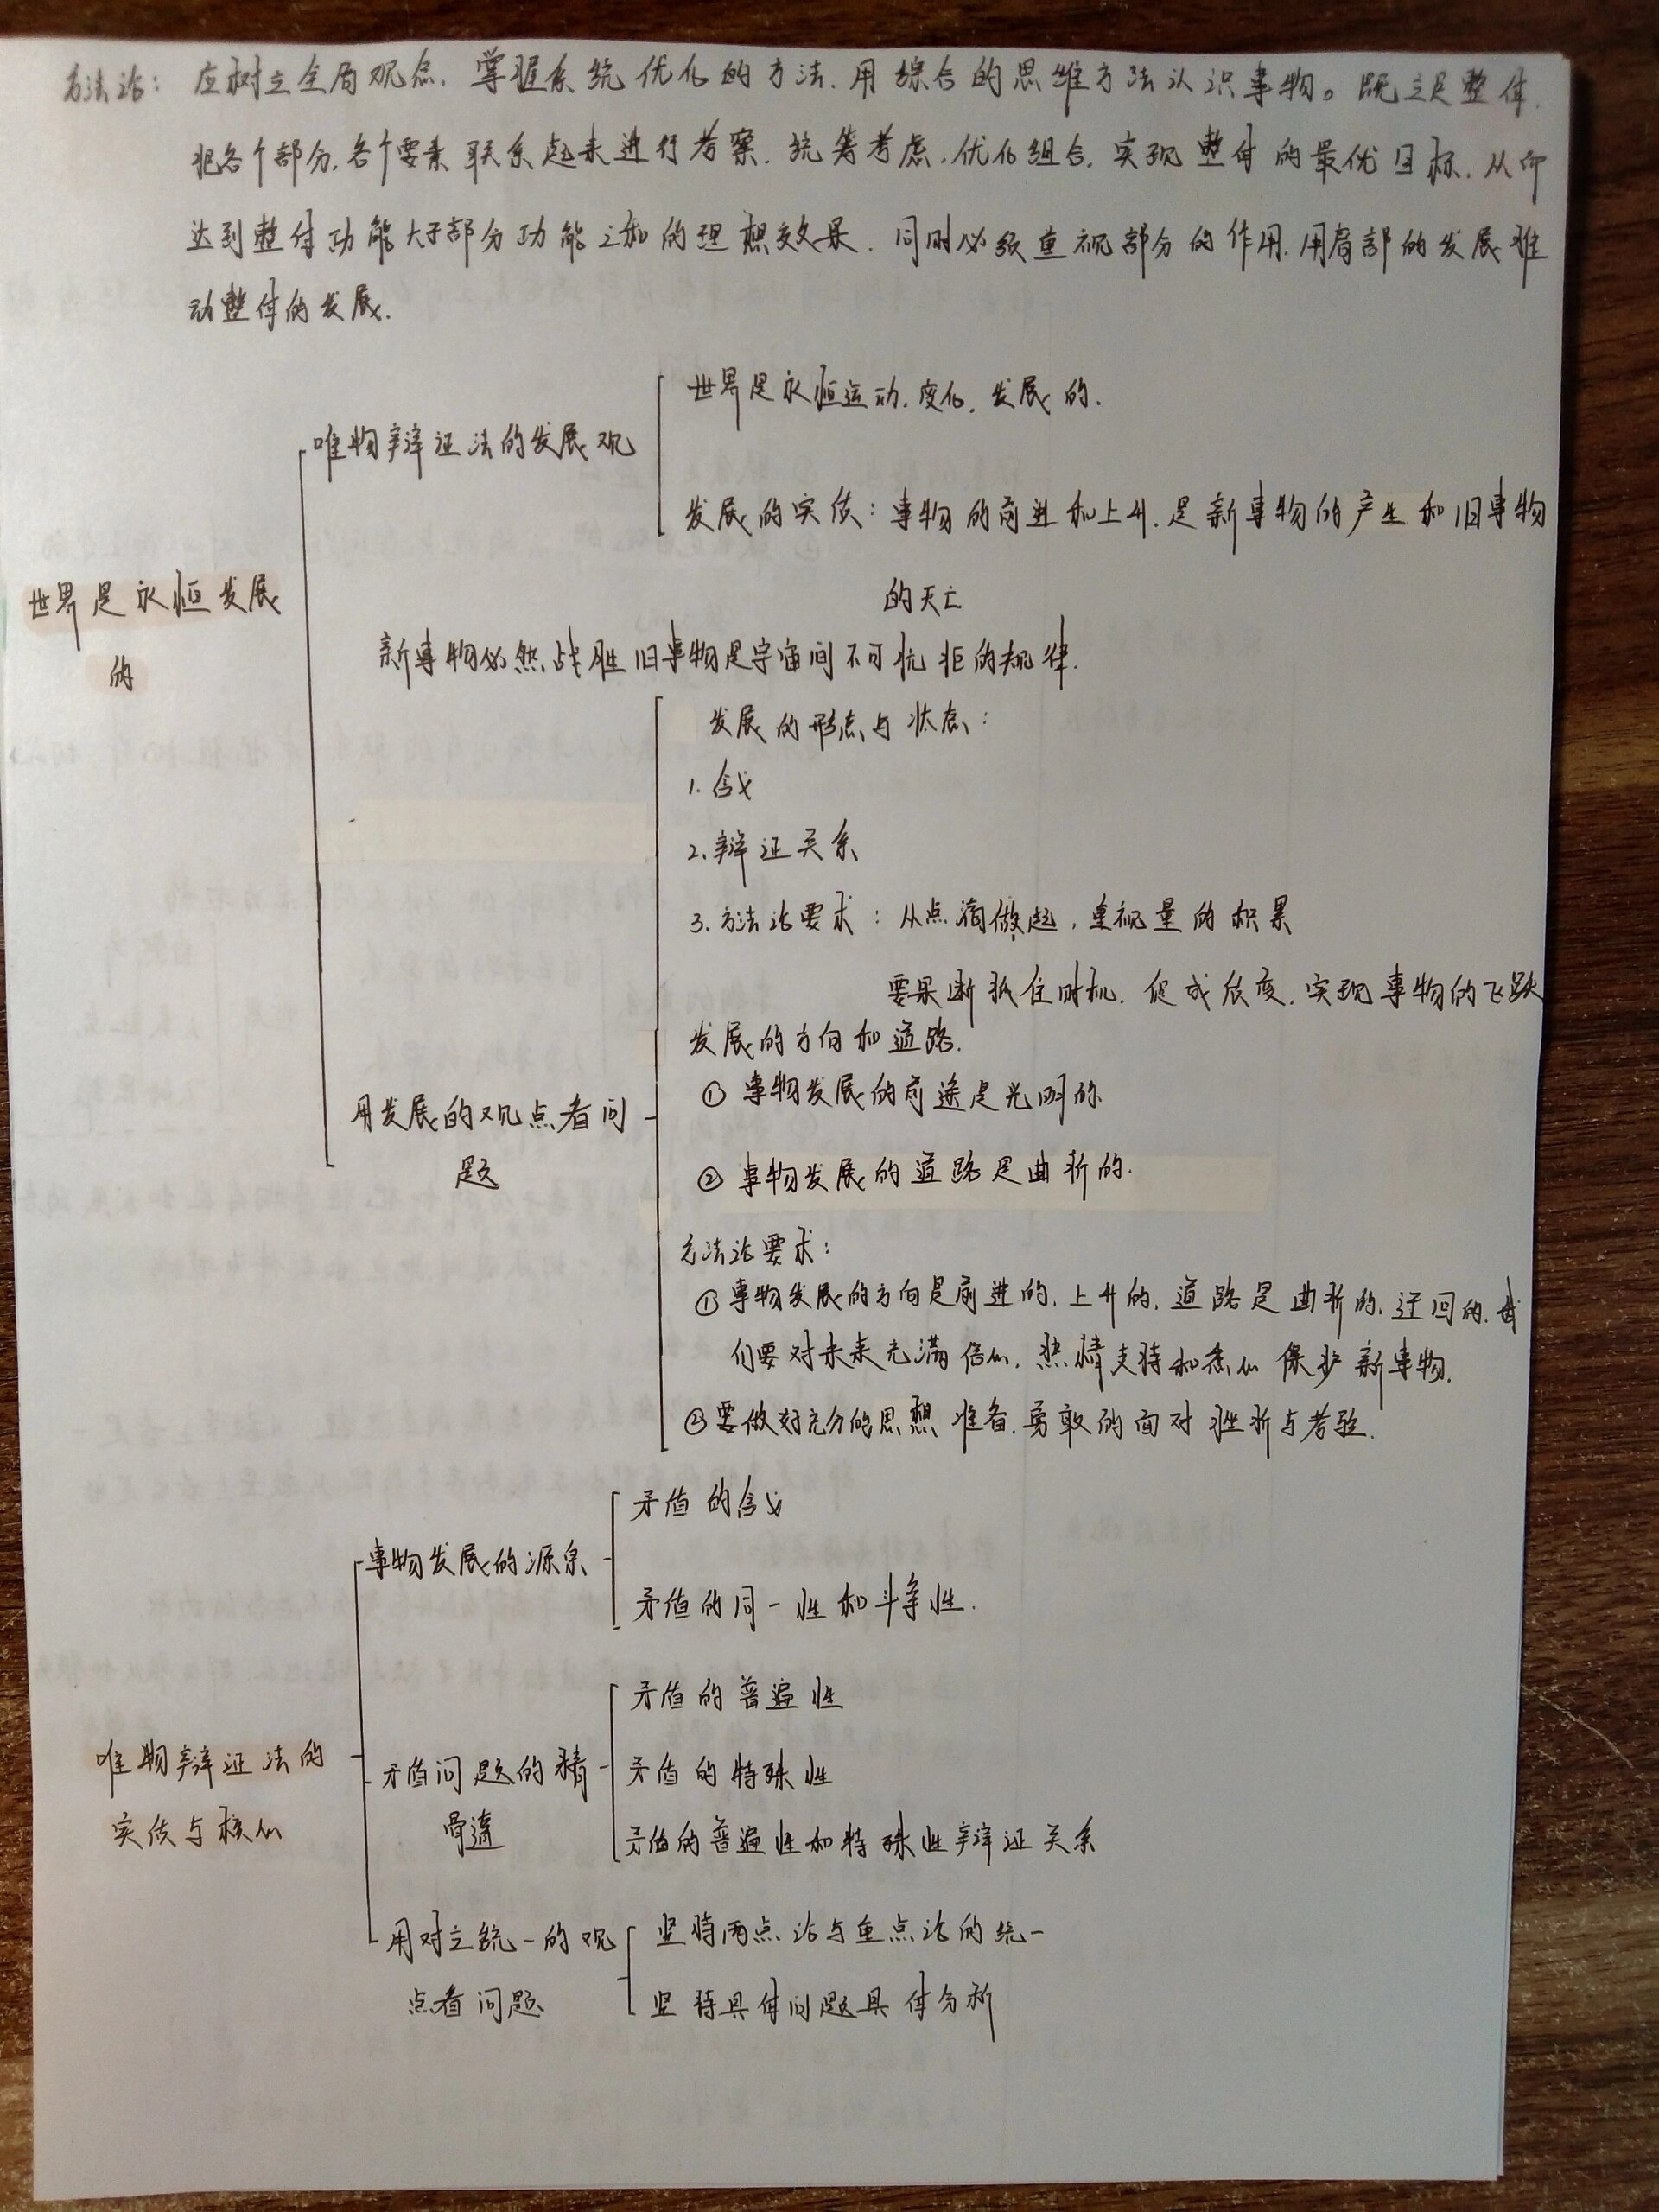 方法论：应树立全局观念，掌握系统优化的方法，用综合的思维方法认识事物。既立足整体，
把各个部分，各个要素联系起来进行考察，统筹考虑，优化组合，实现整体的最优目标，从而
达到整体功能大于部分功能之和的理想效果，同时必须重视部分的作用，用局部的发展推
动整体的发展.
世界是永恒运动，变化，发展的.
唯物辩证法的发展观
发展的实质：事物的前进和上升，是新事物的产生和旧事物
的灭亡
世界是永恒发展
的
新事物必然战胜旧事物是宇宙间不可抗拒的规律.
发展的形态与状态：
1. 含义
2. 辩证关系
3. 方法论要求：从点滴做起，重视量的积累
要果断抓住时机，促成质变，实现事物的飞跃
发展的方向和道路.
① 事物发展的前途是光明的
用发展的观点看问
题
② 事物发展的道路是曲折的.
方法论要求：
① 事物发展的方向是前进的，上升的，道路是曲折的，迂回的，我
们要对未来充满信心，热情支持和悉心保护新事物.
② 要做好充分的思想准备，勇敢的面对挫折与考验.
矛盾的含义
事物发展的源泉
矛盾的同一性和斗争性.
矛盾的普遍性
唯物辩证法的
实质与核心
矛盾问题的精
骨遀
矛盾的特殊性
矛盾的普遍性和特殊性辩证关系
用对立统一的观
点看问题
坚持两点论与重点论的统一
坚持具体问题具体分析